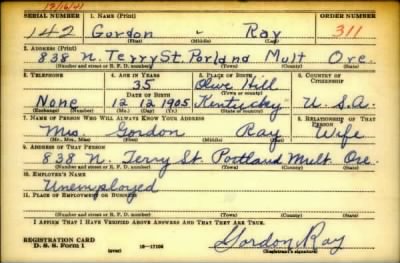 12/16/41
SERIAL NUMBER 1. NAME (Print) ORDER NUMBER
142 Gordon - Ray 311
(First) (Middle) (Last)
2. ADDRESS (Print)
838 N. Terry St. Porland Mult Ore.
(Number and street or R. F. D. number) (Town) (County) (State)
3. TELEPHONE 4. AGE IN YEARS 5. PLACE OF BIRTH 6. COUNTRY OF CITIZENSHIP
35 Olive Hill
DATE OF BIRTH (Town or county)
None 12 12 1905 Kentuckey U.S.A.
(Exchange) (Number) (Mo.) (Day) (Yr.) (State or country)
7. NAME OF PERSON WHO WILL ALWAYS KNOW YOUR ADDRESS 8. RELATIONSHIP OF THAT PERSON
Mrs Gordon Ray Wife
(Mr., Mrs., Miss) (First) (Middle) (Last)
9. ADDRESS OF THAT PERSON
838 N. Terry St Portland Mult. Ore.
(Number and street or R. F. D. number) (Town) (County) (State)
10. EMPLOYER'S NAME
Unemployed
11. PLACE OF EMPLOYMENT OR BUSINESS
(Number and street or R. F. D. number) (Town) (County) (State)
I AFFIRM THAT I HAVE VERIFIED ABOVE ANSWERS AND THAT THEY ARE TRUE.
REGISTRATION CARD
D. S. S. Form 1 (over) 16-17105 Gordon Ray
(Registrant's signature)